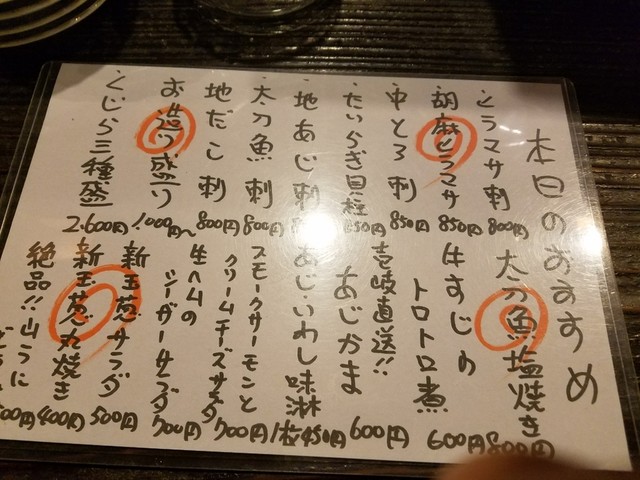 本日のおすすめ
・ヒラマサ刺 800円
・胡麻ヒラマサ 850円
・中とろ刺 850円
・たいらぎ貝柱 850円
・地あじ刺
・太刀魚刺 800円
・地だこ刺 800円
・お造り盛り 1.000円〜
・くじら三種盛 2.600円
太刀魚塩焼き 800円
牛すじの
トロトロ煮 600円
壱岐直送!!
あじかま 600円
あじ・いわし味淋 1枚450円
スモークサーモンと
クリームチーズサラダ 700円
生ハムの
シーザーサラダ 700円
新玉葱サラダ 500円
新玉葱丸焼き 400円
絶品!!山うに